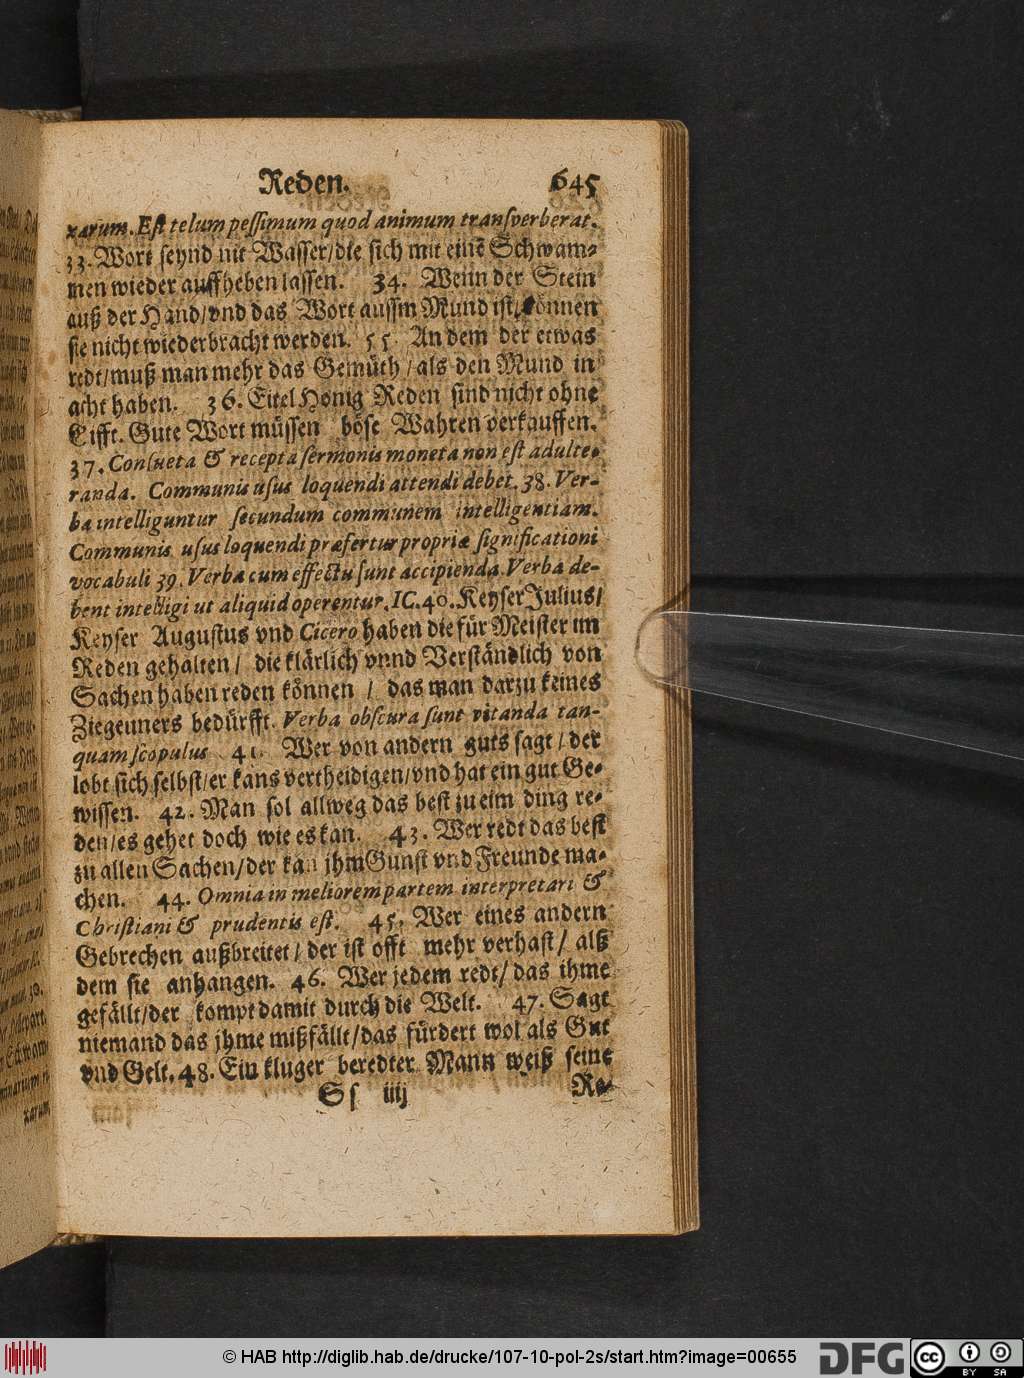 Reden. 645
xarum. Est telum pessimum quod animum transverberat.
33. Wort seynd nit Wasser/die sich mit einē Schwam-
men wieder auffheben lassen. 34. Wenn der Stein
auß der Hand/vnd das Wort aussm Mund ist/können
sie nicht wiederbracht werden. 55 An dem der etwas
redt/muß man mehr das Gemüth/als den Mund in
acht haben. 36. Eitel Honig Reden sind nicht ohne
Gifft. Gute Wort müssen böse Wahren verkauffen.
37. Consueta & recepta sermonis moneta non est adulte-
randa. Communis usus loquendi attendi debet. 38. Ver-
ba intelliguntur secundum communem intelligentiam.
Communis usus loquendi præfertur propriæ significationi
vocabuli 39. Verba cum effectu sunt accipienda. Verba de-
bent intelligi ut aliquid operentur. IC. 40. Keyser Julius/
Keyser Augustus vnd Cicero haben die für Meister im
Reden gehalten/ die klärlich vnnd Verständlich von
Sachen haben reden können / das man darzu keines
Ziegeuners bedürfft. Verba obscura sunt vitanda tan-
quam scopulus 41. Wer von andern guts sagt/der
lobt sich selbst/er kans vertheidigen/vnd hat ein gut Ge-
wissen. 42. Man sol allweg das best zu eim ding re-
den/es gehet doch wie es kan. 43. Wer redt das best
zu allen Sachen/der kan jhm Gunst vnd Freunde ma-
chen. 44. Omnia in meliorem partem interpretari &
Christiani & prudentis est. 45. Wer eines andern
Gebrechen außbreitet/ der ist offt mehr verhast/ alß
dem sie anhangen. 46. Wer jedem redt/ das ihme
gefällt/der kompt damit durch die Welt. 47. Sagt
niemand das jhme mißfällt/das fürdert wol als Gut
vnd Gelt. 48. Ein kluger beredter Mann weiß seine
Ss iiij Re-
© HAB http://diglib.hab.de/drucke/107-10-pol-2s/start.htm?image=00655 DFG cc BY SA